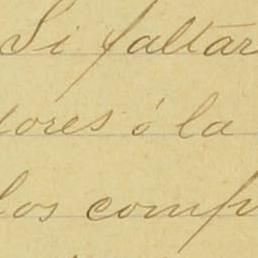 Si faltar
dores ó la
los comp